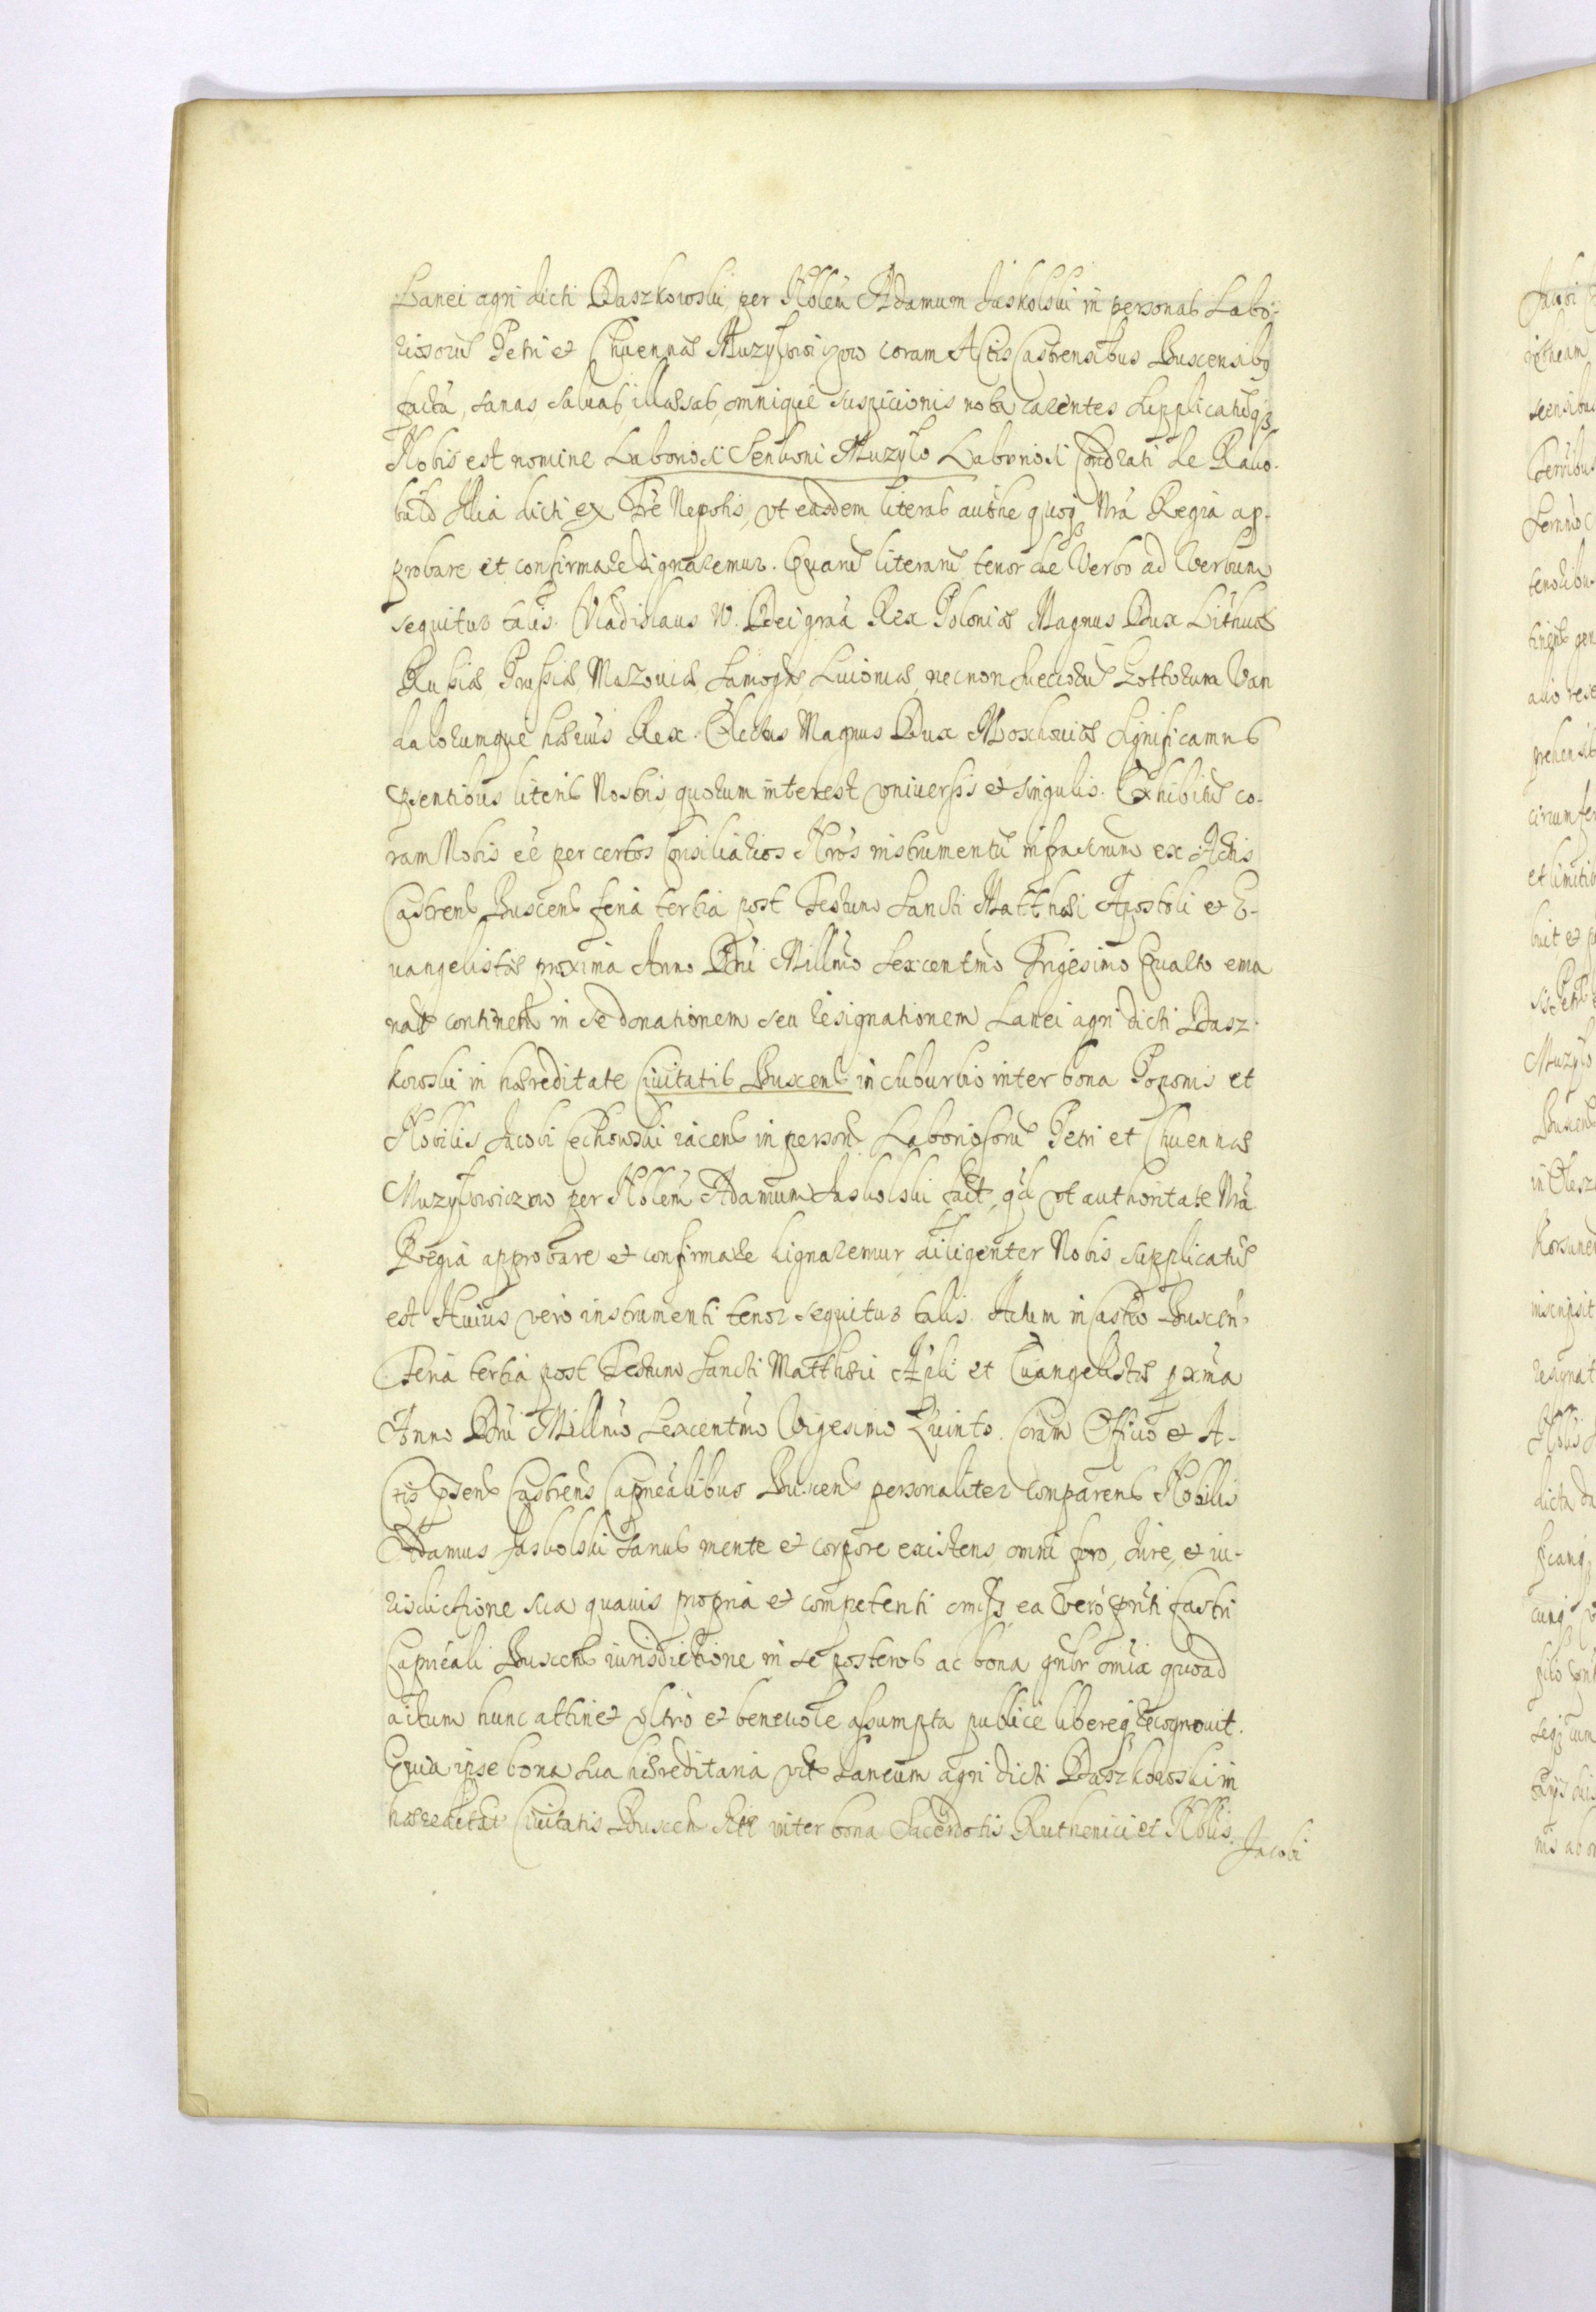 Lanei agri dicti Daszkowski per Nobilem Adamum Jaskolski in personas Labo-
riosorū Petri et Chuennæ Muzyłowiczow coram Actis Castrensibus Buscensibq
facta, sanas saluas, illæsas, omnique suspicionis nota carentes supplicatūq3
Nobis est nomine Laboriosi Senkoni Muzyło Laboriosi Condrati de
Alia dicti ex vt easdem literas authe quoq Nrā Regia ap-
probare et confirmare dignaremur. Quarū literarū tenor de Verbo ad Verbum
sequitur talis. Vladislaus IV. Dei graā Rex Poloniæ Magnus Dux Lithuæ
Russiæ Prussiæ Mazouiæ Samogiæ, Liuoniæ, necnon Suecorū Gottorum Van
dalorumque hæreūs Rex. Electus Magnus Dux Moschouiæ Significamus
psentibus literis Nostris, quorum interest vniuersis et singulis. Exhibitū co-
ram Nobis eē per certos Consiliarios Nros instrumentū infrascriptum ex Actis
Castrens Buscens feria tertia post Festum Sancti Matthæi Apostoli et E-
uangelistæ proxima Anno Dni Millmo Sexcentmo Trigesimo Quarto ema
nat continens in se donationem seu resignationem Lanei agri dicti Dasz-
kowski in hæreditate Ciuitatis Buscens in suburbio inter bona Poponis et
Nobilis Jacobi Cechowski iacens in person Laboriosorū Petri et Chuennæ
Muzyłowiczow per Nobilem Adamum Jaskolski fact, qd vt authoritate Nrā
Regiā approbare et confirmare dignaremur diligenter Nobis supplicatū
est Huius vero instrumenti tenor sequitur talis. Actum in Castro Buscen.
Feria tertia post Festum Sancti Matthæi Apli et Euangelistæ pxma
Anno Dni Millmo Sexcentmo Vigesimo Quinto. Coram Officio et A-
ctis psens Castrens Capnealibus Buscens personaliter comparens Nobilis
Adamus Jaskolski sanus mente et corpore existens, omni foro, Jure, et iu-
risdictione sua quauis propria et competenti omiss ea vero pnti Castri
Capneali Buscens iurisdictione in se posteros ac bona gnlr omīa quoad
actum hunc attinet vltro et beneuole assumpta publice libereq recognouit.
Quia ipse bona sua hæreditaria vt Laneum agri dicti Daszkowski in
hæreditat Ciuitatis Buscen inter bona Sacerdotis Ruthenici et Nblis
Jacobi